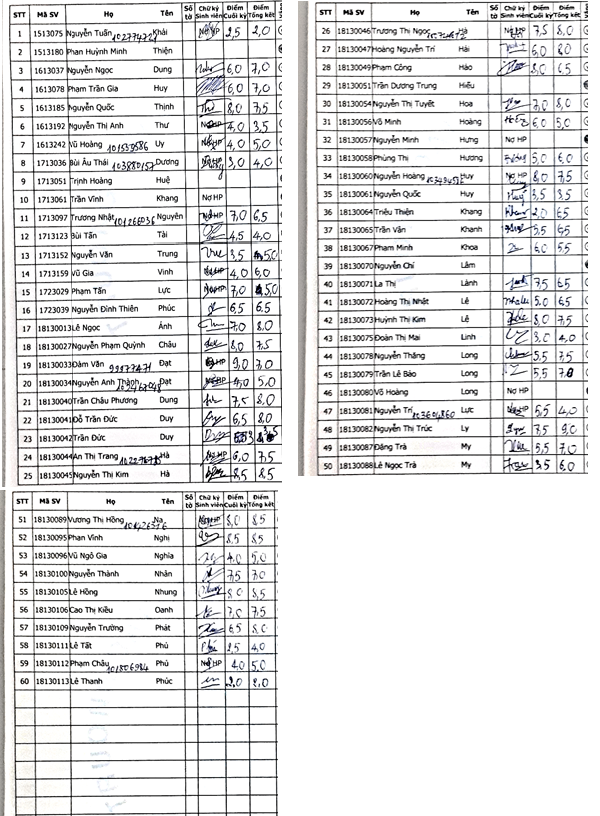 STT Mã SV Họ Tên Số tờ Chữ ký Sinh viên Điểm Cuối kỳ Điểm Tổng kết
1 1513075 Nguyễn Tuấn Khải Nợ HP 2,5 2,0
2 1513180 Phan Huỳnh Minh Thiện
3 1613037 Nguyễn Ngọc Dung 6,0 7,0
4 1613078 Phạm Trần Gia Huy 6,0 7,0
5 1613185 Nguyễn Quốc Thịnh 8,0 7,5
6 1613192 Nguyễn Thị Anh Thư Nợ HP 4,0 3,5
7 1613242 Vũ Hoàng Uy Nợ HP 4,0 5,0
8 1713036 Bùi Âu Thái Dương Nợ HP 3,0 4,0
9 1713051 Trịnh Hoàng Huệ
10 1713061 Trần Vĩnh Khang Nợ HP
11 1713097 Trương Nhật Nguyên Nợ HP 7,0 6,5
12 1713123 Bùi Tấn Tài 4,5 4,0
13 1713152 Nguyễn Văn Trung 3,5 5,0
14 1713159 Vũ Gia Vinh Nợ HP 4,0 6,0
15 1723029 Phạm Tấn Lực Nợ HP 7,0 5,0
16 1723039 Nguyễn Đình Thiên Phúc 6,5 6,5
17 18130013 Lê Ngọc Ánh 7,0 8,0
18 18130027 Nguyễn Phạm Quỳnh Châu 8,0 7,5
19 18130033 Đàm Văn Đạt Nợ HP 9,0 7,0
20 18130034 Nguyễn Anh Thành Đạt Nợ HP 4,0 5,0
21 18130040 Trần Châu Phương Dung 7,5 8,0
22 18130041 Đỗ Trần Đức Duy 6,5 8,0
23 18130042 Trần Đức Duy
24 18130044 An Thị Trang Hà Nợ HP 6,0 7,5
25 18130045 Nguyễn Thị Kim Hà 8,5 8,5
STT Mã SV Họ Tên Số tờ Chữ ký Sinh viên Điểm Cuối kỳ Điểm Tổng kết
26 18130046 Trương Thị Ngọc Hà Nợ HP 7,5 8,0
27 18130047 Hoàng Nguyễn Trí Hải 6,0 8,0
28 18130049 Phạm Công Hảo 8,0 6,5
29 18130051 Trần Dương Trung Hiếu
30 18130054 Nguyễn Thị Tuyết Hoa 7,0 8,0
31 18130056 Võ Minh Hoàng 6,0 5,0
32 18130057 Nguyễn Minh Hưng Nợ HP
33 18130058 Phùng Thị Hương 5,0 6,0
34 18130060 Nguyễn Hoàng Huy Nợ HP 8,0 7,5
35 18130061 Nguyễn Quốc Huy 3,5 3,5
36 18130064 Triệu Thiên Khang 2,0 6,5
37 18130065 Trần Vân Khanh 5,5 6,5
38 18130067 Phạm Minh Khoa 6,0 5,5
39 18130070 Nguyễn Chí Lâm
40 18130071 La Thị Lành 7,5 6,5
41 18130072 Hoàng Thị Nhật Lê 5,0 6,5
42 18130073 Huỳnh Thị Kim Lê 8,0 7,5
43 18130075 Đoàn Thị Mai Linh 3,0 4,0
44 18130078 Nguyễn Thăng Long 5,5 7,5
45 18130079 Trần Lê Bảo Long 5,5
46 18130080 Võ Hoàng Long Nợ HP
47 18130081 Nguyễn Trí Lực Nợ HP 5,5 4,0
48 18130082 Nguyễn Thị Trúc Ly 7,5 9,0
49 18130087 Đặng Trà My 5,5 7,0
50 18130088 Lê Ngọc Trà My 3,5 6,0
STT Mã SV Họ Tên Số tờ Chữ ký Sinh viên Điểm Cuối kỳ Điểm Tổng kết
51 18130089 Vương Thị Hồng Na Nợ HP 8,0 8,5
52 18130095 Phan Vĩnh Nghị 8,5 8,5
53 18130096 Vũ Ngô Gia Nghĩa 4,0 5,0
54 18130100 Nguyễn Thành Nhân 7,5 7,0
55 18130105 Lê Hồng Nhung 8,0 8,5
56 18130106 Cao Thị Kiều Oanh 7,0 7,5
57 18130109 Nguyễn Trường Phát 6,5 8,0
58 18130111 Lê Tất Phú 2,5 4,0
59 18130112 Phạm Châu Phú Nợ HP 4,0 5,0
60 18130113 Lê Thanh Phúc 2,0 2,0